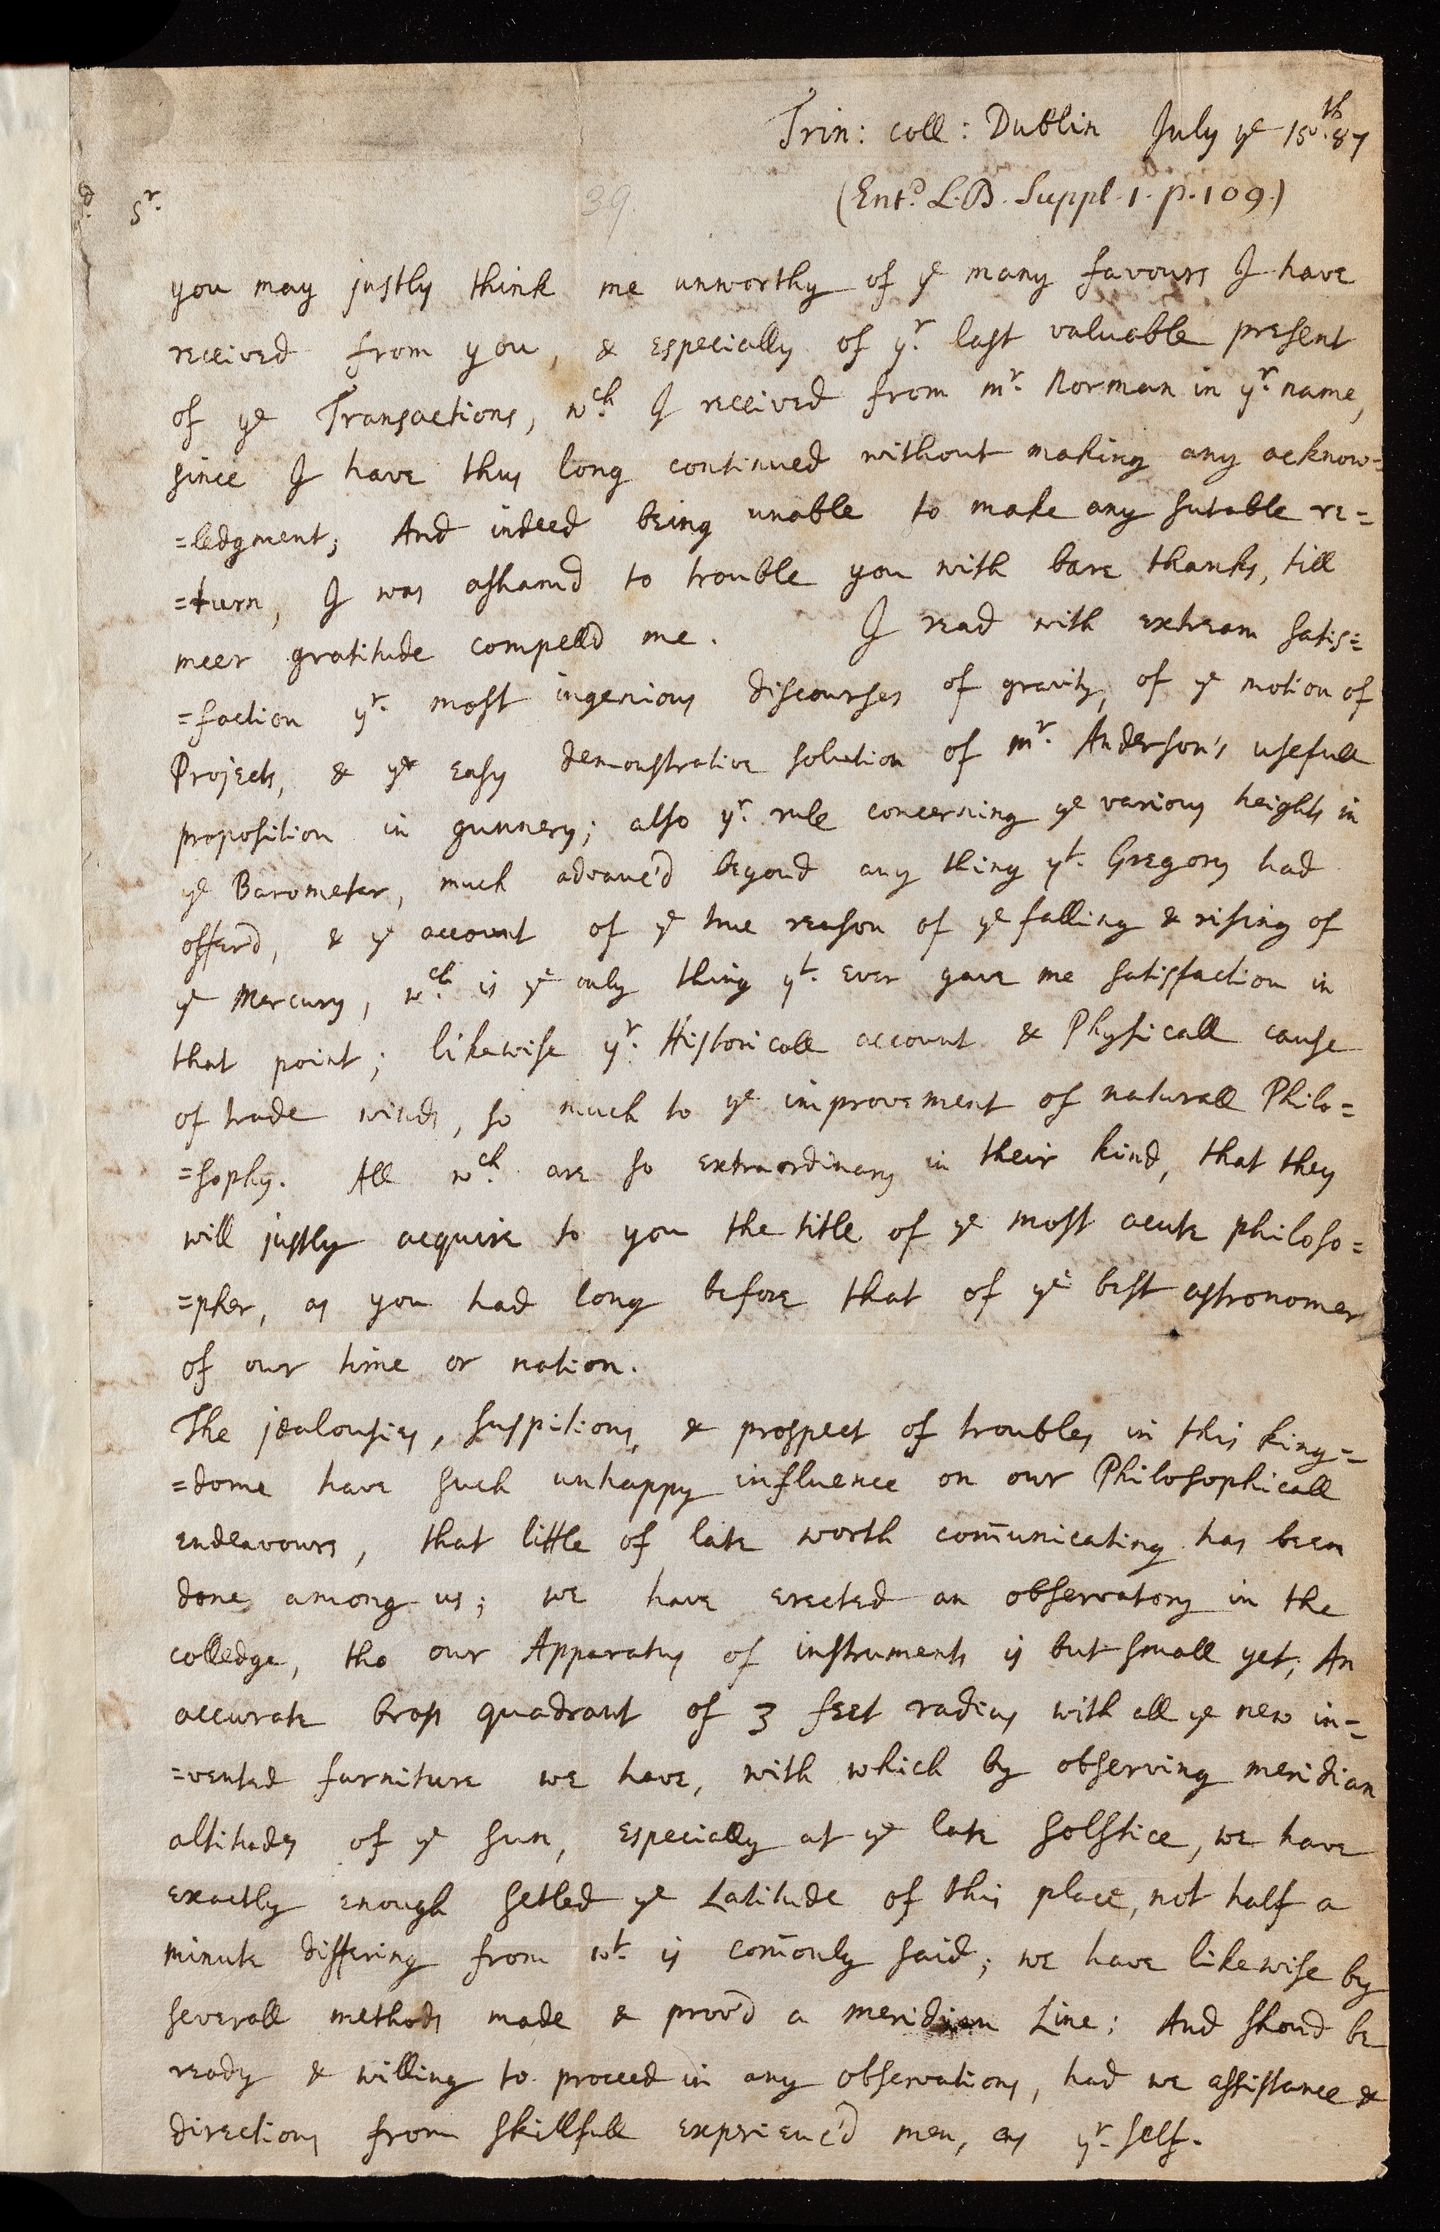 Trin: coll: Dublin July ye 15th. 87
39
(Entd. L.B. Suppl. 1. p. 109.)
Sr.
you may justly think me unworthy of ye many favours I have
received from you, & especially of yr. last valuable present
of ye Transactions, wch. I received from mr. Norman in yr. name,
since I have thus long continued without making any acknow=
=ledgment; And indeed being unable to make any sutable re=
=turn, I was asham'd to trouble you with bare thanks, till
meer gratitude compell'd me. I read with extream satis=
=faction yr. most ingenious discourses of gravity, of ye motion of
Projects, & ye easy demonstrative solution of mr. Anderson's usefull
proposition in gunnery; also yr. rule concerning ye various heights in
ye Barometer, much advanc'd beyond any thing yt. Gregory had
offer'd, & ye account of ye true reason of ye falling & rising of
ye Mercury, wch. is ye only thing yt. ever gave me satisfaction in
that point; likewise yr. Historicall account & Physicall cause
of trade winds, so much to ye improvement of naturall Philo=
=sophy. All wch. are so extraordinary in their kind, that they
will justly acquire to you the title of ye most acute philoso=
=pher, as you had long before that of ye best astronomer
of our time or nation.
The jealousies, suspitions, & prospect of troubles in this king=
=dome have such unhappy influence on our Philosophicall
endeavours, that little of late worth com̄unicating has been
done among us; we have erected an observatory in the
colledge, tho our Apparatus of instruments is but small yet; An
accurate brass quadrant of 3 feet radius with all ye new in=
=vented furniture we have, with which by observing meridian
altitudes of ye sun, especially at ye late solstice, we have
exactly enough setled ye Latitude of this place, not half a
minute differing from wt. is com̄only said; we have likewise by
severall methods made & prov'd a meridian Line; And shoud be
ready & willing to proceed in any observations, had we assistance &
directions from skillfull experienc'd men, as yr. self.